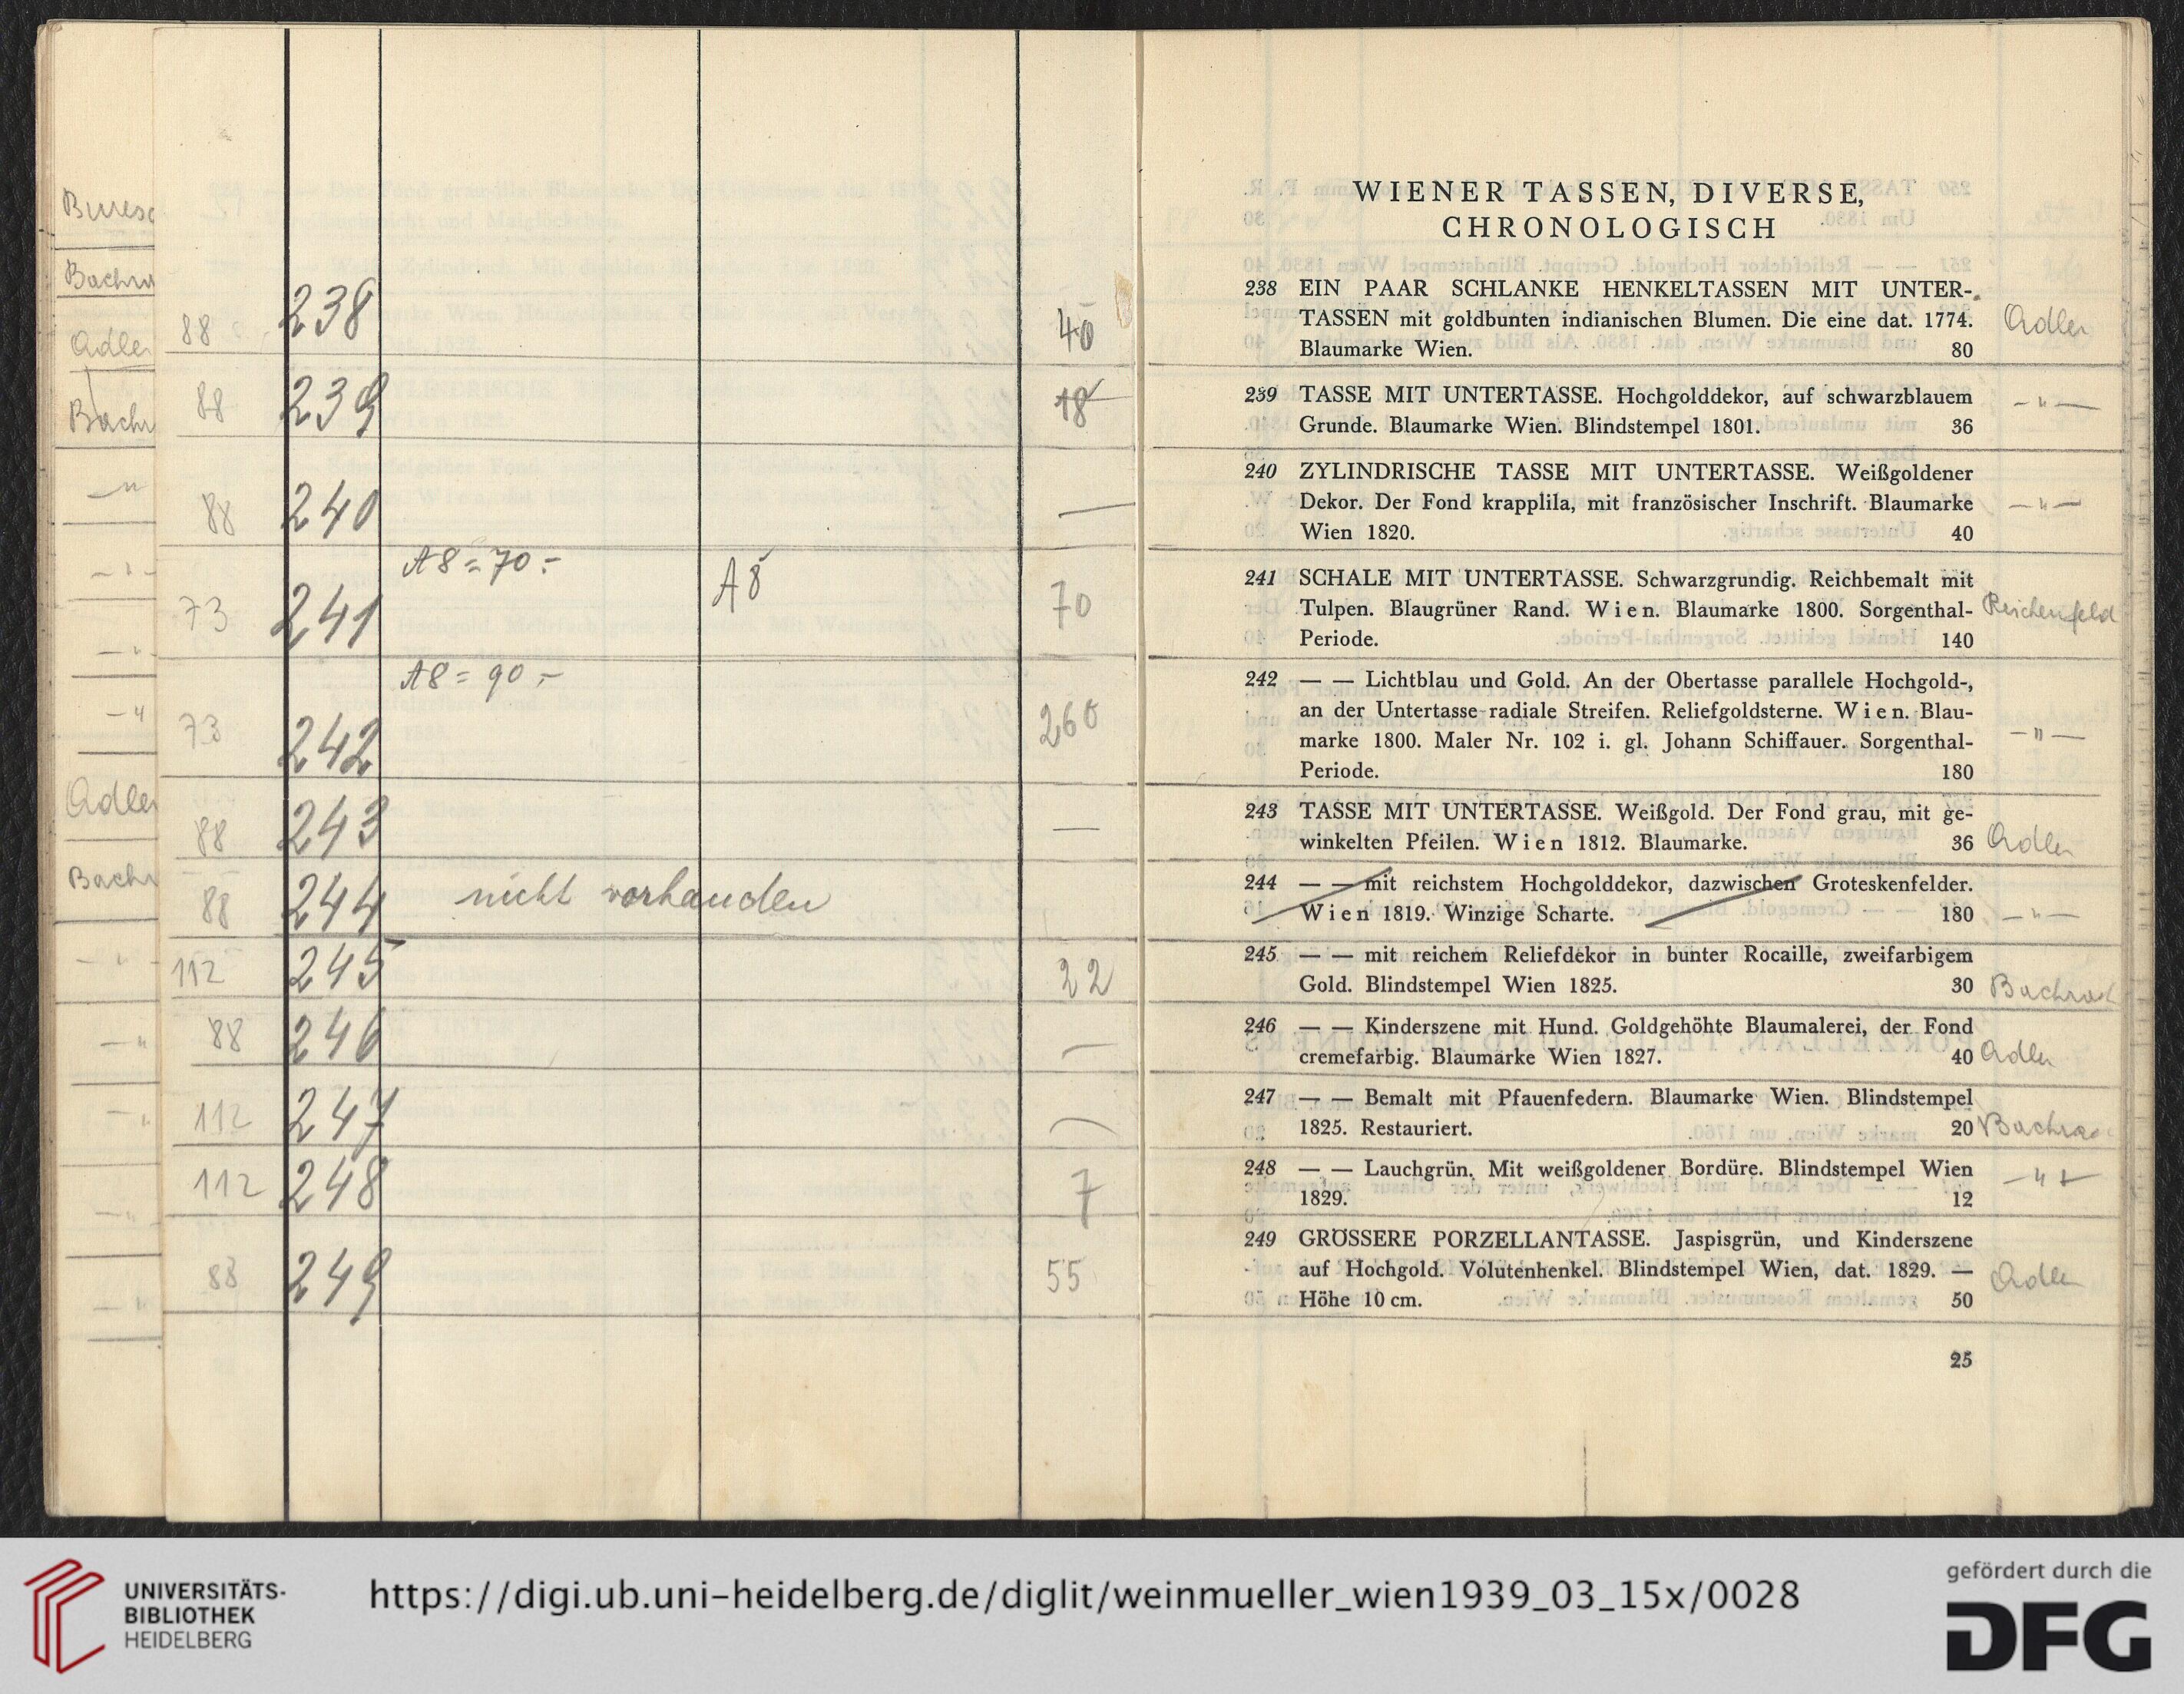 Adler
Bach
Adler
88 238 40
88 239 18
88 240 —
A8 = 70.-
73 241 A8 70
A8 = 90.-
73 242 260
88 243 —
88 244 nicht vorhanden
112 245 22
88 246 —
112 247 —
112 248 7
88 249 55
WIENER TASSEN, DIVERSE,
CHRONOLOGISCH
238 EIN PAAR SCHLANKE HENKELTASSEN MIT UNTER-
TASSEN mit goldbunten indianischen Blumen. Die eine dat. 1774. Adler
Blaumarke Wien. 80
239 TASSE MIT UNTERTASSE. Hochgolddekor, auf schwarzblauem —"—
Grunde. Blaumarke Wien. Blindstempel 1801. 36
240 ZYLINDRISCHE TASSE MIT UNTERTASSE. Weißgoldener
Dekor. Der Fond krapplila, mit französischer Inschrift. Blaumarke —"—
Wien 1820. 40
241 SCHALE MIT UNTERTASSE. Schwarzgrundig. Reichbemalt mit
Tulpen. Blaugrüner Rand. Wien. Blaumarke 1800. Sorgenthal- Reichenfeld
Periode. 140
242 — — Lichtblau und Gold. An der Obertasse parallele Hochgold-,
an der Untertasse radiale Streifen. Reliefgoldsterne. Wien. Blau-
marke 1800. Maler Nr. 102 i. gl. Johann Schiffauer. Sorgenthal- —"—
Periode. 180
243 TASSE MIT UNTERTASSE. Weißgold. Der Fond grau, mit ge-
winkelten Pfeilen. Wien 1812. Blaumarke. 36 Adler
244 — — mit reichstem Hochgolddekor, dazwischen Groteskenfelder.
Wien 1819. Winzige Scharte. 180 —"—
245 — — mit reichem Reliefdekor in bunter Rocaille, zweifarbigem
Gold. Blindstempel Wien 1825. 30 Bachrach
246 — — Kinderszene mit Hund. Goldgehöhte Blaumalerei, der Fond
cremefarbig. Blaumarke Wien 1827. 40 Adler
247 — — Bemalt mit Pfauenfedern. Blaumarke Wien. Blindstempel
1825. Restauriert. 20 Bachrac
248 — — Lauchgrün. Mit weißgoldener Bordüre. Blindstempel Wien —"—
1829. 12
249 GRÖSSERE PORZELLANTASSE. Jaspisgrün, und Kinderszene
auf Hochgold. Volutenhenkel. Blindstempel Wien, dat. 1829. — Adler
Höhe 10 cm. 50
25
UNIVERSITÄTS-
BIBLIOTHEK
HEIDELBERG
https://digi.ub.uni-heidelberg.de/diglit/weinmueller_wien1939_03_15x/0028
gefördert durch die
DFG